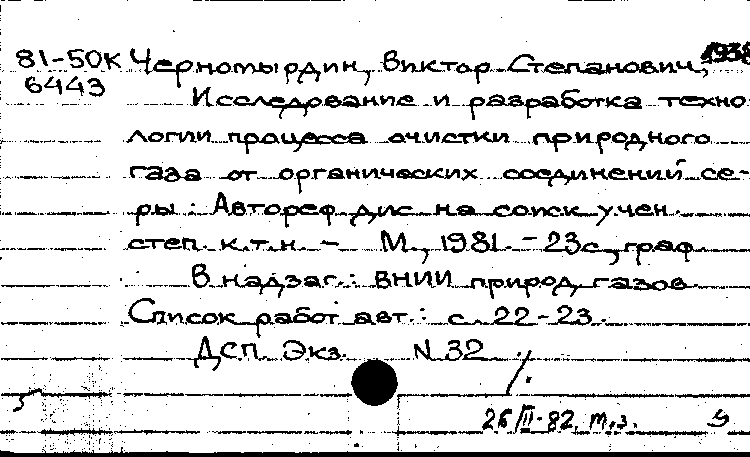 81-50К Черномырдин, Виктор Степанович, 1938
6443
Исследование и разработка техно
логии процесса очистки природного
газа от органических соединений се-
ры : Автореф дис на соиск учен.
степ. к.т.н. - М., 1981. - 23с, граф
В надзаг.: ВНИИ природ, газов
Список работ авт.: с. 22-23.
ДСП. Экз. N 32
26/III-82. т.з.